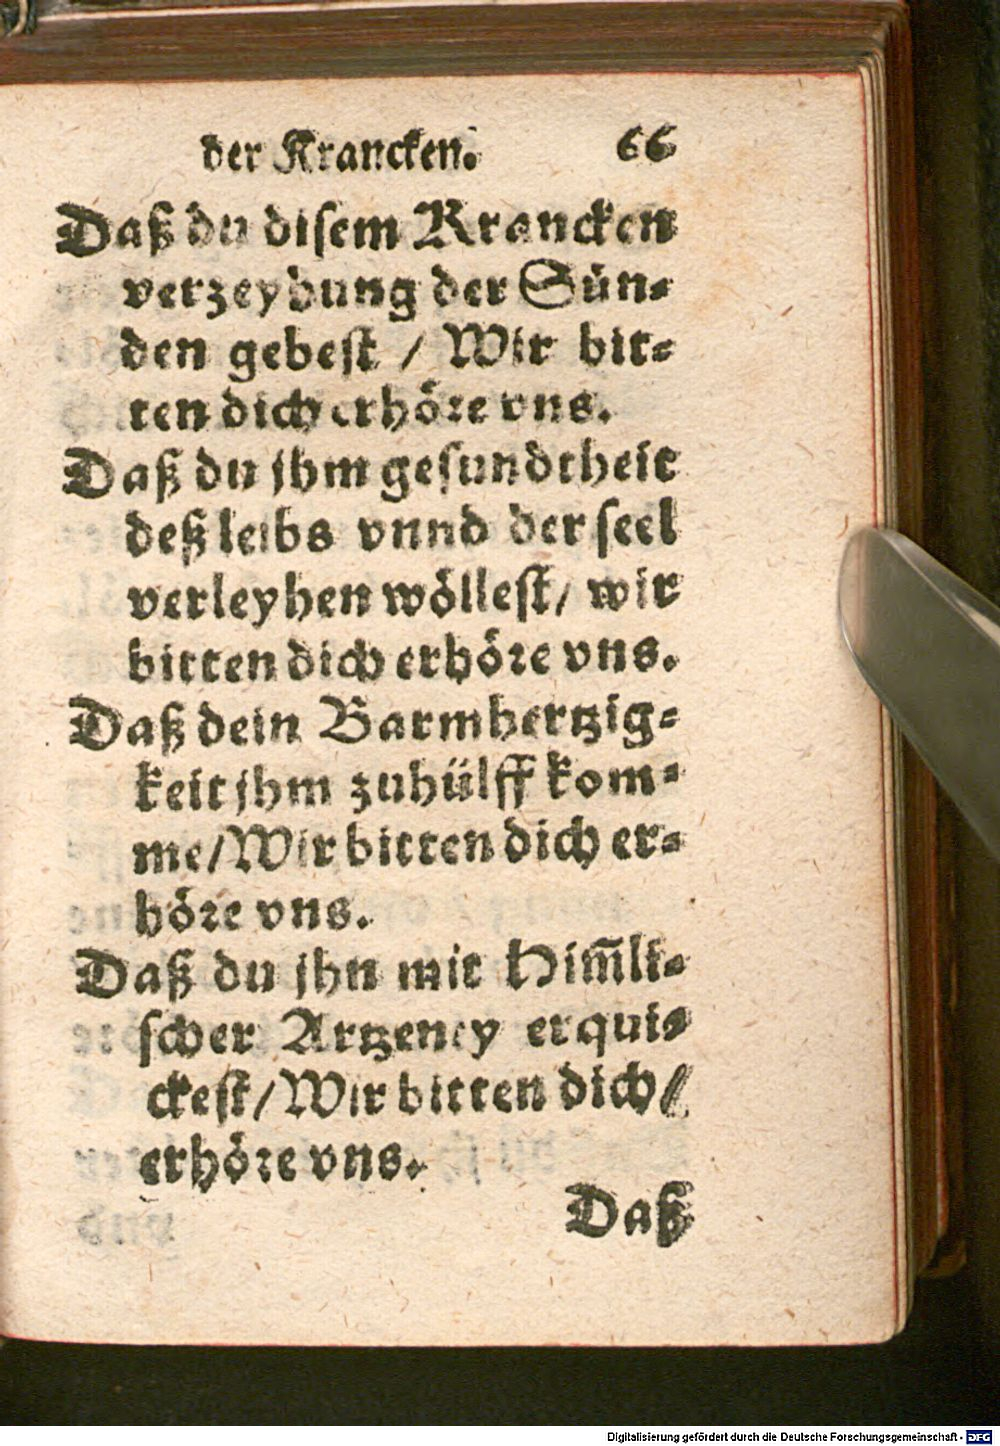 der Krancken. 66
Daß du disem Krancken
verzeyhung der Sün-
den gebest / Wir bit-
ten dich erhöre vns.
Daß du jhm gesundtheit
deß leibs vnnd der seel
verleyhen wöllest / wir
bitten dich erhöre vns.
Daß dein Barmhertzig-
keit jhm zuhülff kom-
me / Wir bitten dich er-
höre vns.
Daß du jhn mit Him̄li-
scher Artzeney erqui-
ckest / Wir bitten dich /
erhöre vns.
Daß
Digitalisierung gefördert durch die Deutsche Forschungsgemeinschaft - DFG